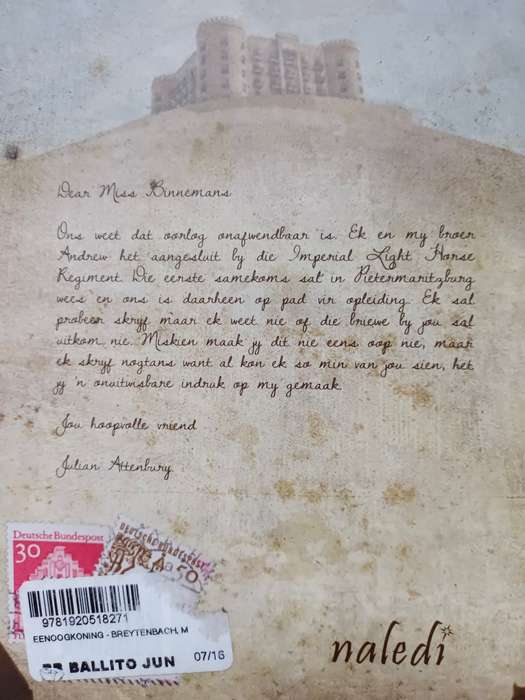 Dear Miss Binnemans
Ons weet dat oorlog onafwendbaar is. Ek en my broer
Andrew het aangesluit by die Imperial Light Horse
Regiment. Die eerste samekoms sal in Pietermaritzburg
wees en ons is daarheen op pad vir opleiding. Ek sal
probeer skryf maar ek weet nie of die briewe by jou sal
uitkom nie. Miskien maak jy dit nie eens oop nie, maar
ek skryf nogtans want al kon ek so min van jou sien, het
jy 'n onuitwisbare indruk op my gemaak.
Jou hoopvolle vriend
Julian Attenbury
Deutsche Bundespost
30
Deutsche Bundespost
50
9781920518271
EENOOGKONING - BREYTENBACH, M
BALLITO JUN 07/16
naledi